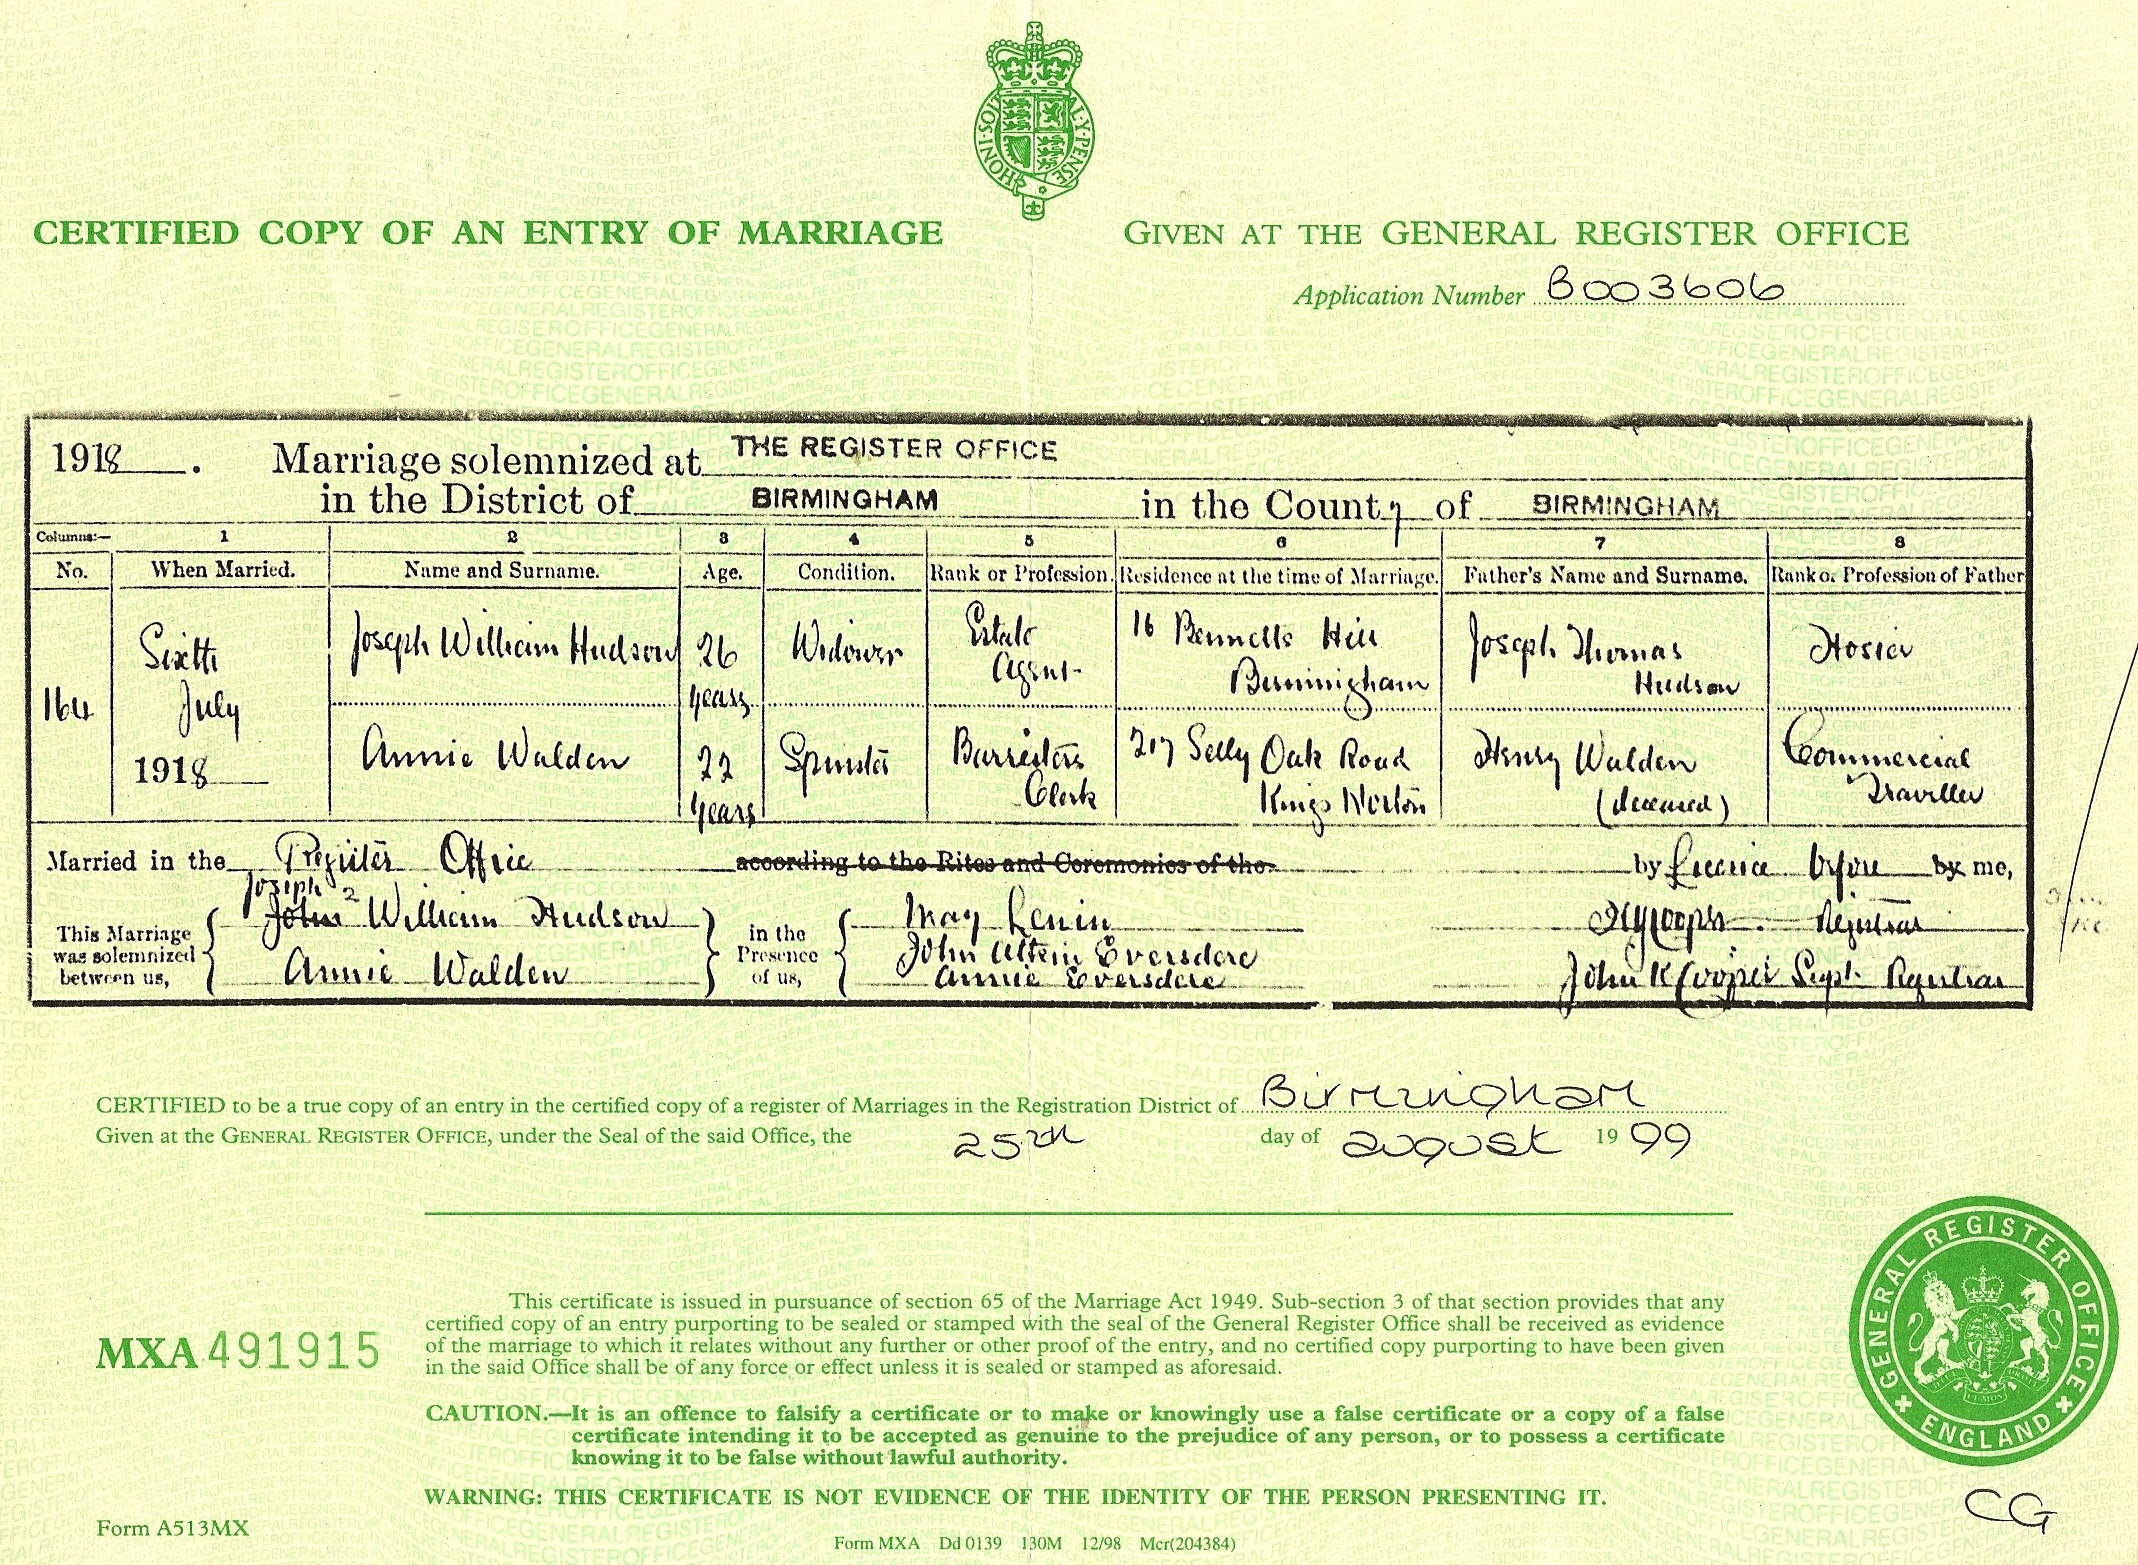 HONI·SOIT
AL·Y·PENSE
CERTIFIED COPY OF AN ENTRY OF MARRIAGE
GIVEN AT THE GENERAL REGISTER OFFICE
Application Number B003606
1918. Marriage solemnized at THE REGISTER OFFICE
in the District of BIRMINGHAM in the County of BIRMINGHAM
Columns:— 1 2 3 4 5 6 7 8
No. When Married. Name and Surname. Age. Condition. Rank or Profession. Residence at the time of Marriage. Father's Name and Surname. Rank or Profession of Father
164 Sixth July 1918
Joseph William Hudson 26 years Widower Estate Agent 16 Bennetts Hill Birmingham Joseph Thomas Hudson Hosier
Annie Walden 22 years Spinster Barristers Clerk 217 Selly Oak Road Kings Norton Henry Walden (deceased) Commercial Traveller
Married in the Register Office according to the Rites and Ceremonies of the by Licence before by me,
This Marriage was solemnized between us,
Joseph
John William Hudson
Annie Walden
in the Presence of us,
May
John Eversdere
Annie Eversdere
Registrar
John K Cooper Supt. Registrar
CERTIFIED to be a true copy of an entry in the certified copy of a register of Marriages in the Registration District of Birmingham
Given at the GENERAL REGISTER OFFICE, under the Seal of the said Office, the 25th day of August 1999
MXA 491915
This certificate is issued in pursuance of section 65 of the Marriage Act 1949. Sub-section 3 of that section provides that any
certified copy of an entry purporting to be sealed or stamped with the seal of the General Register Office shall be received as evidence
of the marriage to which it relates without any further or other proof of the entry, and no certified copy purporting to have been given
in the said Office shall be of any force or effect unless it is sealed or stamped as aforesaid.
CAUTION.—It is an offence to falsify a certificate or to make or knowingly use a false certificate or a copy of a false
certificate intending it to be accepted as genuine to the prejudice of any person, or to possess a certificate
knowing it to be false without lawful authority.
WARNING: THIS CERTIFICATE IS NOT EVIDENCE OF THE IDENTITY OF THE PERSON PRESENTING IT.
GENERAL REGISTER OFFICE
ENGLAND
CG
Form A513MX
Form MXA Dd 0139 130M 12/98 Mcr(204384)